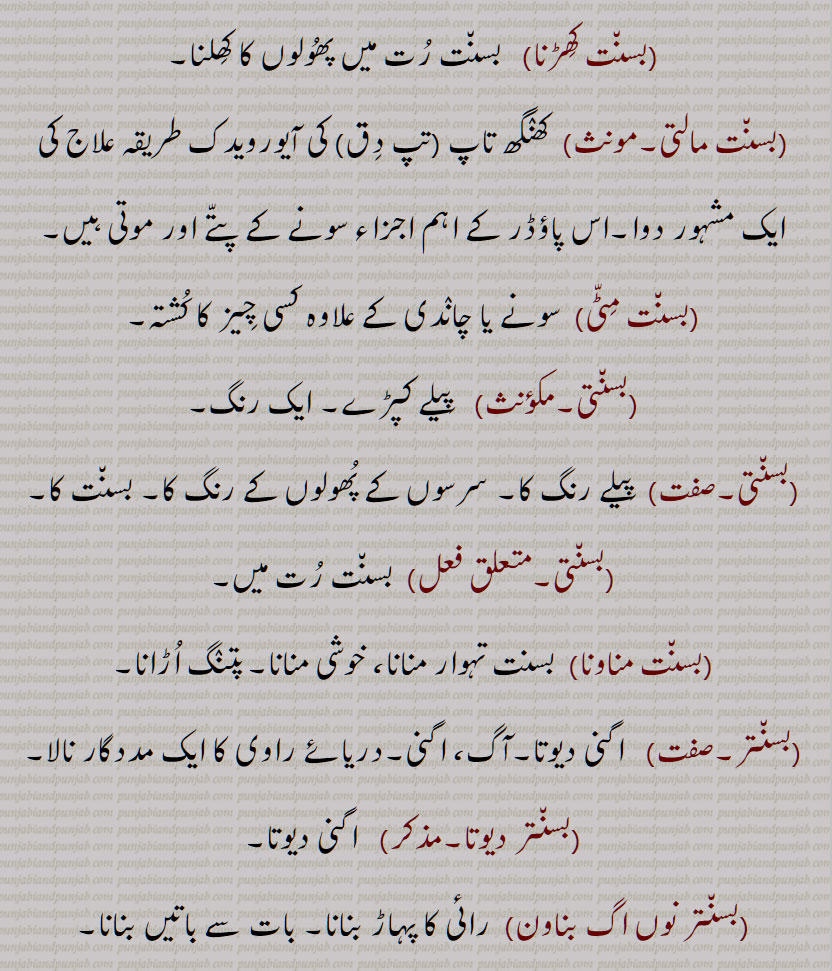 (بسنّت کِھڑنا) بسنّت رُت میں پھُولوں کا کِھلنا۔
(بسنّت مالتی۔مونث) کھنگھ تاپ (تپ دِق) کی آیورویدک طریقہ علاج کی
ایک مشہور دوا۔اس پاؤڈر کے اہم اجزاء سونے کے پتّے اور موتی ہیں۔
(بسنّت مِٹّی) سونے یا چاندی کے علاوہ کسی چِیز کا کُشتہ۔
(بسنّتی۔مکؤنث) پِیلے کپڑے۔ ایک رنگ۔
(بسنّتی۔صفت) پِیلے رنگ کا۔ سرسوں کے پُھولوں کے رنگ کا۔ بسنّت کا۔
(بسنّتی۔متعلق فعل) بسنّت رُت میں۔
(بسنّت مناونا) بسنت تہوار منانا، خوشی منانا۔ پتنگ اُڑانا۔
(بسنّتر۔صفت) اگنی دیوتا۔آگ، اگنی۔دریائے راوی کا ایک مددگار نالا۔
(بسنّتر دیوتا۔مذکر) اگنی دیوتا۔
(بسنّتر نوں اگ بناون) رائی کا پہاڑ بنانا۔ بات سے باتیں بنانا۔